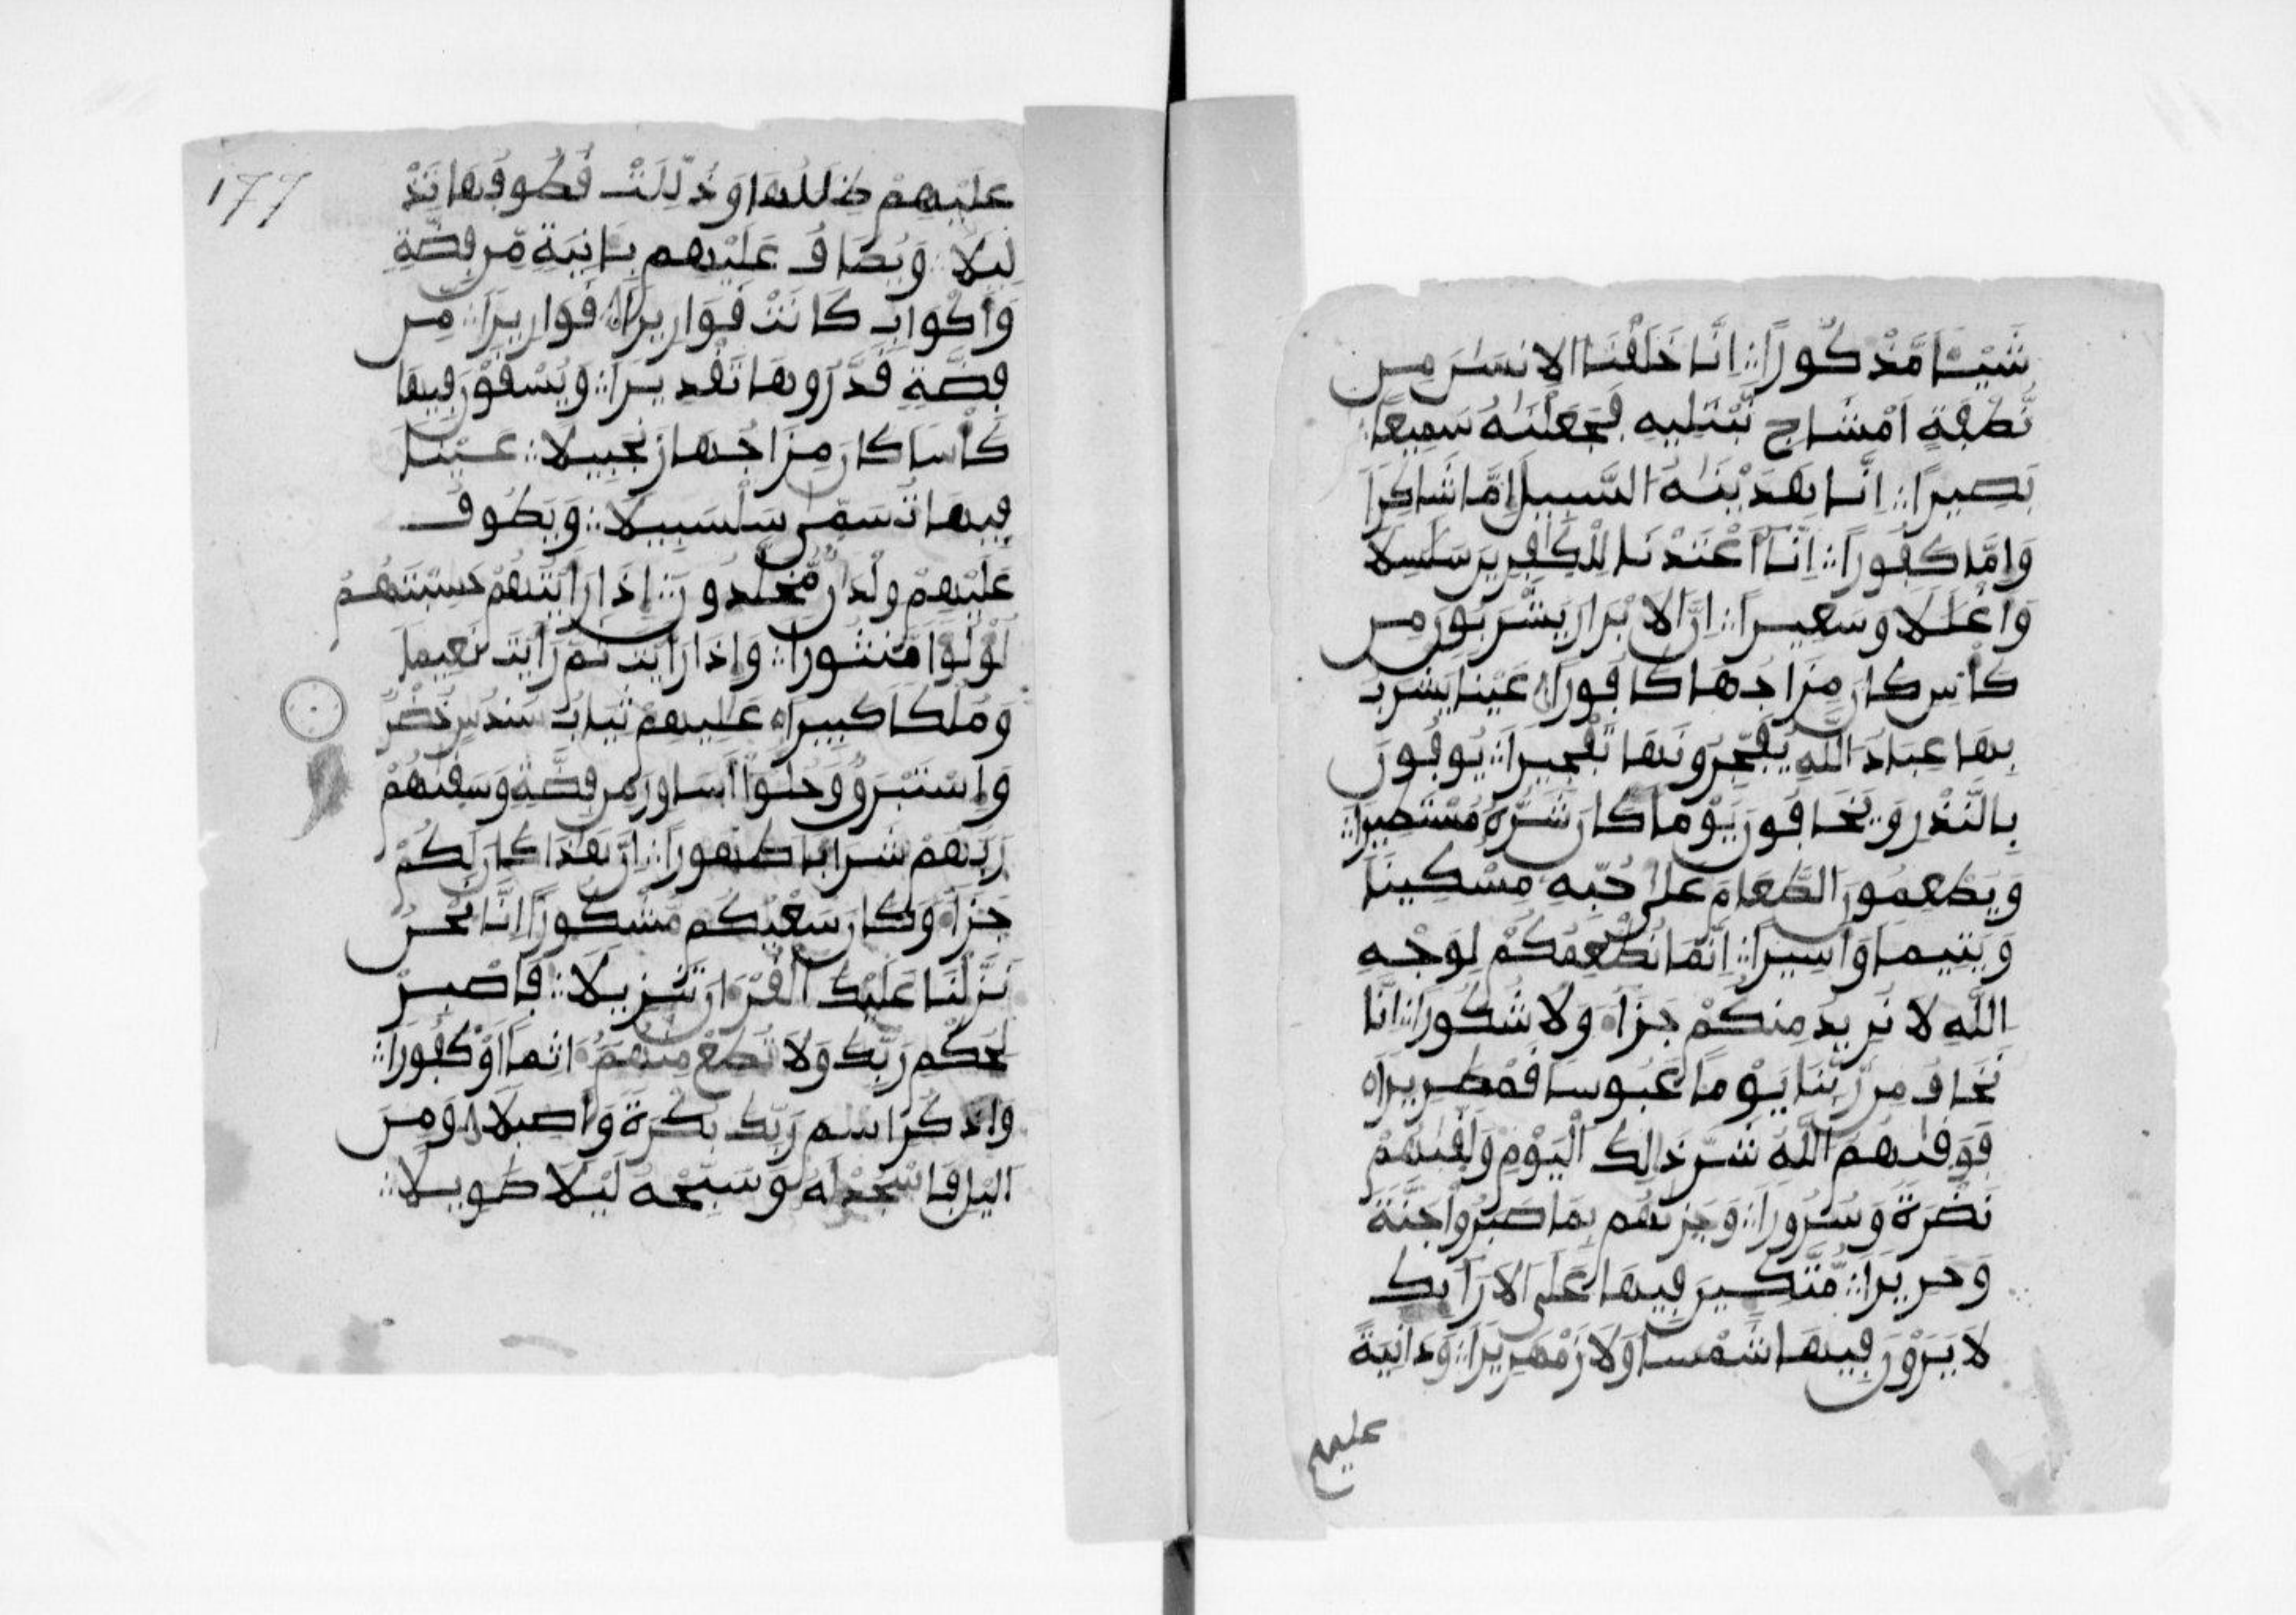 شَيْـًٔا مَّذْكُورًا ∴ اِنَّا خَلَقْنَا الِانسَٰنَ مِن
نُّطْفَةٍ اَمْشَاجٍ نَّبْتَلِيهِ فَجَعَلْنَٰهُ سَمِيعًا
بَصِيرًا ∴ اِنَّا هَدَيْنَٰهُ السَّبِيلَ إِمَّا شَاكِرًا
وَإِمَّا كَفُورًا ∴ اِنَّا أَعْتَدْنَا لِلْكَٰفِرِينَ سَلَٰسِلًا
وَأَغْلَٰلًا وَسَعِيرًا ∴ اِنَّ الَابْرَارَ يَشْرَبُونَ مِن
كَأْسٍ كَانَ مِزَاجُهَا كَافُورًا عَيْنًا يَشْرَبُ
بِهَا عِبَادُ اللَّهِ يُفَجِّرُونَهَا تَفْجِيرًا ∴ يُوفُونَ
بِالنَّذْرِ وَيَخَافُونَ يَوْمًا كَانَ شَرُّهُ مُسْتَطِيرًا ∴
وَيُطْعِمُونَ الطَّعَامَ عَلَىٰ حُبِّهِ مِسْكِينًا
وَيَتِيمًا وَأَسِيرًا ∴ اِنَّمَا نُطْعِمُكُمْ لِوَجْهِ
اللَّهِ لَا نُرِيدُ مِنكُمْ جَزَآءً وَلَا شُكُورًا ∴ اِنَّا
نَخَافُ مِن رَّبِّنَا يَوْمًا عَبُوسًا قَمْطَرِيرًا
فَوَقَىٰهُمُ اللَّهُ شَرَّ ذَٰلِكَ الْيَوْمِ وَلَقَّىٰهُمْ
نَضْرَةً وَسُرُورًا ∴ وَجَزَىٰهُم بِمَا صَبَرُواْ جَنَّةً
وَحَرِيرًا ∴ مُّتَّكِـِٔينَ فِيهَا عَلَى الَارَآئِكِ
لَا يَرَوْنَ فِيهَا شَمْسًا وَلَا زَمْهَرِيرًا ∴ وَدَانِيَةً
عليهم
177
عَلَيْهِمْ ظِلَٰلُهَا وَذُلِّلَتْ قُطُوفُهَا تَذْ
لِيلًا ∴ وَيُطَافُ عَلَيْهِم بِـَٔانِيَةٍ مِّن فِضَّةٍ
وَأَكْوَابٍ كَانَتْ قَوَارِيرًا قَوَارِيرًا ∴ مِن
فِضَّةٍ قَدَّرُوهَا تَقْدِيرًا ∴ وَيُسْقَوْنَ فِيهَا
كَأْسًا كَانَ مِزَاجُهَا زَنجَبِيلًا ∴ عَيْنًا
فِيهَا تُسَمَّىٰ سَلْسَبِيلًا ∴ وَيَطُوفُ
عَلَيْهِمْ وِلْدَٰنٌ مُّخَلَّدُونَ ∴ إِذَا رَأَيْتَهُمْ حَسِبْتَهُمْ
لُؤْلُؤًا مَّنثُورًا ∴ وَإِذَا رَأَيْتَ ثَمَّ رَأَيْتَ نَعِيمًا
وَمُلْكًا كَبِيرًا عَٰلِيهِمْ ثِيَابُ سُندُسٍ خُضْرٌ
وَإِسْتَبْرَقٌ وَحُلُّوٓاْ أَسَاوِرَ مِن فِضَّةٍ وَسَقَىٰهُمْ
رَبُّهُمْ شَرَابًا طَهُورًا ∴ اِنَّ هَٰذَا كَانَ لَكُمْ
جَزَآءً وَكَانَ سَعْيُكُم مَّشْكُورًا اِنَّا نَحْنُ
نَزَّلْنَا عَلَيْكَ الْقُرْءَانَ تَنزِيلًا ∴ فَاصْبِرْ
لِحُكْمِ رَبِّكَ وَلَا تُطِعْ مِنْهُمُۥٓ ءَاثِمًا أَوْ كَفُورًا ∴
وَاذْكُرِ اسْمَ رَبِّكَ بُكْرَةً وَأَصِيلًا وَمِنَ
الَّيْلِ فَاسْجُدْ لَهُ وَسَبِّحْهُ لَيْلًا طَوِيلًا ∴